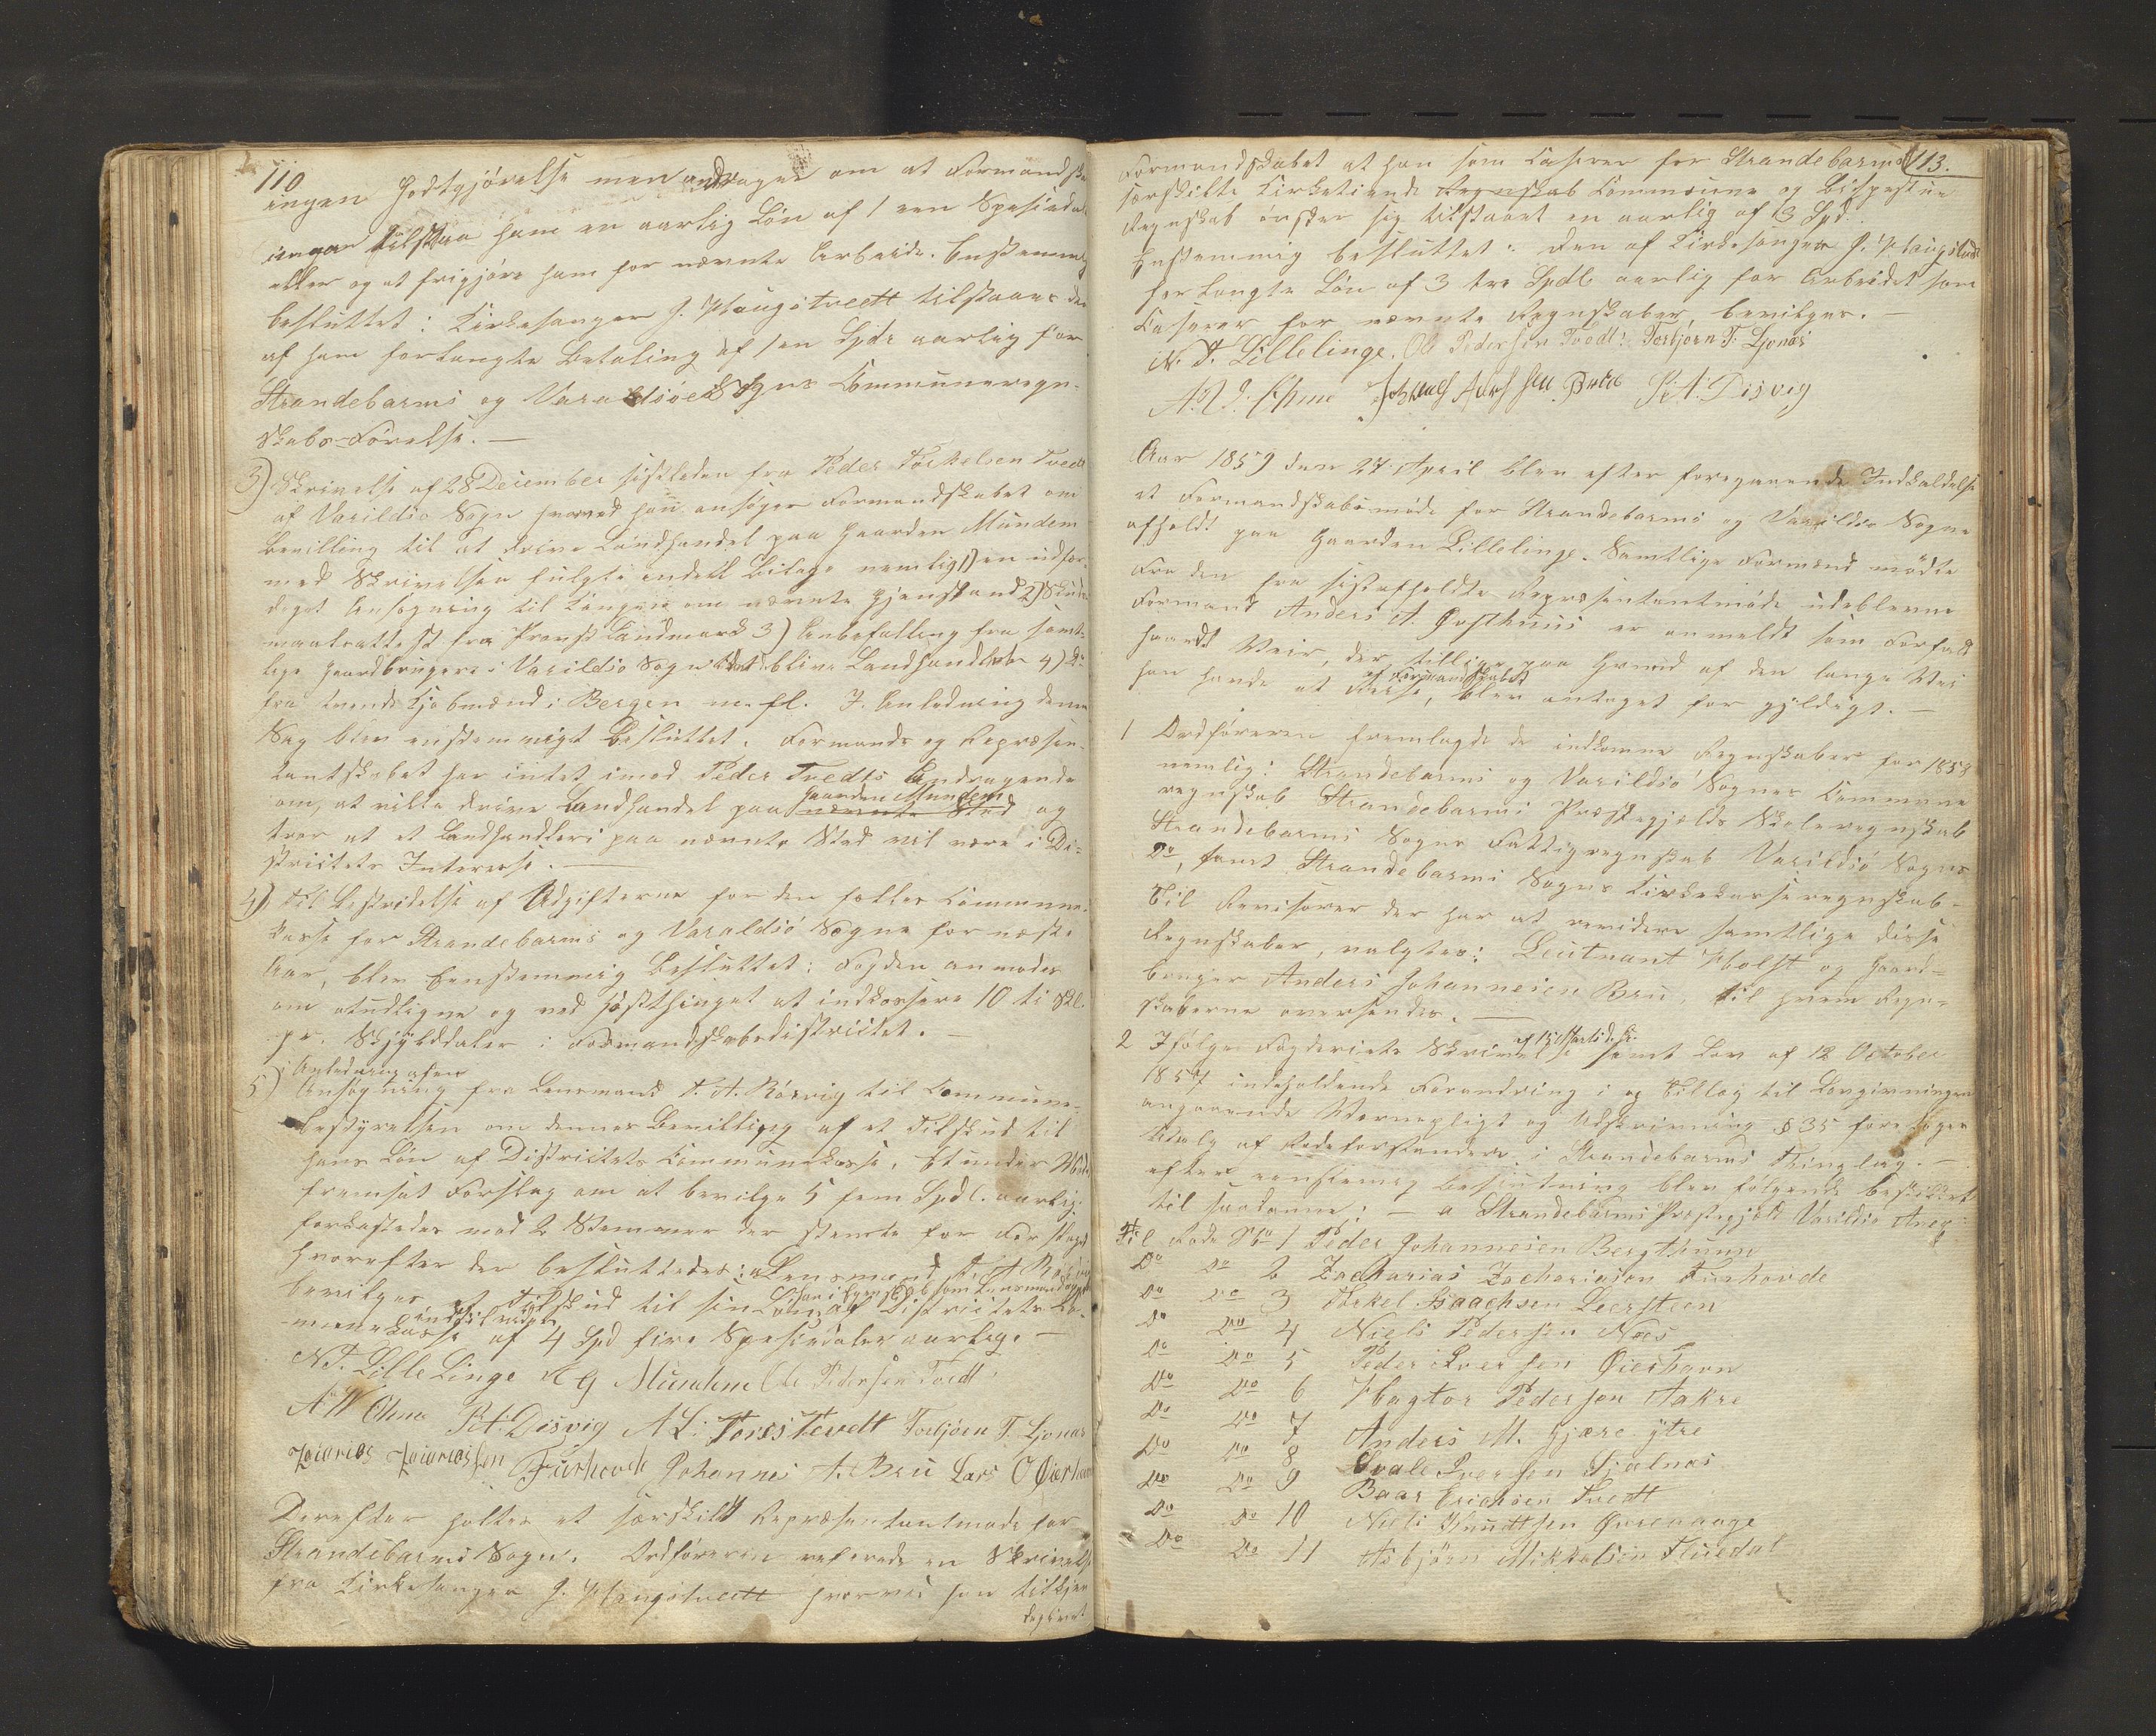 110
ingen Godtgjörelse men andrager om at Formandska
ingen tilstaa ham en aarlig Lön af 1 een Spesieda
eller og at frigjöre ham for nævnte Arbeide. Eenstemmig
besluttet: Kirkesanger J. Haugstvedt tilstaaes den
af ham forlangte Betaling af 1 en Spd. aarlig for
Strandebarms og Varaldsöes Sogns Communeregn-
skabs-Förelse. —
3) Skrivelse af 28 December sistleden fra Peder Torkelsen Tvedt
af Varildsö Sogn hvorved han ansöger Formandskabet om
Bevilling til at drive Landhandel paa Gaarden Mundem
med Skrivelsen fulgte endel Bilage nemlig 1) en udfær-
diget Ansögning til Kongen om nævnte Gjenstand 2) Skuds-
maalsattest fra Provst Landmark 3) Anbefalling fra samt-
lige Gaardbrugere i Varildsö Sogn til at blive Landhandler 4) Do
fra tvende Kjöbmænd i Bergen m. fl. I Anledning denne
Sag blev enstemmigt besluttet: Formands og Repræsen-
tantskabet har intet imod Peder Tvedts Andragende
om, at ville drive Landhandel paa Gaarden Mundem nævnte Sted og
tror at et Landhandleri paa nævnte Sted vil være i Di-
strictets Interesse. —
4) Til Bestridelse af Udgifterne for den fælles Commune-
kasse for Strandebarms og Varaldsö Sogne for næste
Aar, blev Eenstemmig besluttet: Fogden anmodes
om at udligne og ved Höstthinget at indkassere 10 ti Skl.
pr. Skylddaler i Formandskabsdistrictet. —
i Anledning af en
5) Ansögning fra Lensmand T. A. Rörvig til Commune-
bestyrelsen om dennes Bevilling af et Tilskud til
hans Lön af Districtets Communekasse, et under Möde
fremsat Forslag om at bevilge 5 fem Spdl. aarlig
forkastedes mod 2 Stemmer der stemte for Forslaget
hvorefter der besluttedes: Lensmand T. A. Rörvig
bevilges et Tilskud til sin Lön af Districtets Co-
han i Egenskab som Lensmand oppebærer
munekasse indtil videre af 4 Spd fire Spesiedaler aarlig. —
N. T. LilleLinge A G Mundem Ole Pedersen Tvedt
A W Ohma P. A. Disvig A L: Tores Tevedt Torbjörn T. Ljonæs
Zacarias Zacariassen Furhovde Johannes A. Bru Lars O Øierhavn
Derefter holtes et særskildt Repræsentantmöde for
Strandebarms Sogn. Ordföreren refererede en Skrivelse
fra Kirkesanger J. Haugstvedt hvorved han tilkjen-
degivet
113.
Formandskabet at han som Kaserer for Strandebarms
særskilte Kirketiende Regnskab Commune og Bispestue
Regnskab önsker sig tilstaaet en aarlig af 3 Spd.
Enstemmig besluttet: den af Kirkesanger J. Haugstvedt
forlangte Lön af 3 tre Spdl aarlig for Arbeidet som
Kaserer for nævnte Regnskaber, bevilges. —
N. T. Lillelinge. Ole Pedersen Tvedt: Torbjörn T. Ljonæs
A. W. Ohma Johannes Andersen Bru P. A. Disvig
Aar 1859 den 27. April blev efter foregaaende Indkaldelse
et Formandskabsmöde for Strandebarms og Varildsö Sogne
afholdt paa Gaarden Lillelinge. Samtlige Formænd mödte
Fra den fra sistafholdte Repræsentantmöde udeblevne
Formand Anders A. Gosthuus er anmeldt som Forfald
haardt Veir, der tillige paa Grund af den lange Vei
af Formandskabet
han havde at reise, blev antaget for gyldigt. —
1 Ordföreren fremlagde de indkomne Regnskaber for 1858
nemlig: Strandebarms og Varildsö Sognes Commune
regnskab Strandebarms Præstegjælds Skoleregnskab
Strandebarms Sogns Fattigregnskab Varildsö Sogns
Do, samt Strandebarms Sogns Kirkekasseregnskab —
Til Revisorer der har at revidere samtlige disse
Regnskaber, valgtes: Leutnant Holst og Gaard-
bruger Anders Johannesen Bru, til hvem Regn-
skaberne oversendes. —
af 15 Marts d. A.
2 Ifölge Fogderiets Skrivelse samt Lov af 12 October
1857 indeholdende Forandring i og Tillæg til Lovgivningen
angaaende Værnepligt og Udskrivning § 35 foretoges
Valg af Rodeforstandere i Strandebarms Thinglag. —
efter eenstemig Beslutning blev fölgende beskikket
til saadanne: — a Strandebarms Præstegjeld Varildsö Anex:
Til Rode No 1 Peder Johannesen Bergthunn
Do Do 2 Zacharias Zachariasen Furhovde
Do Do 3 Thorkel Isaachsen Leersteen
Do Do 4 Niels Pedersen Næs
Do Do 5 Peder Iversen Øierhavn
Do Do 6 Hagtor Pedersen Aakre
Do Do 7 Anders M. Gjære ytre
Do Do 8 Ovale Iversen Fjælnæs
Do Do 9 Baar Erichsen Tvedt
Do Do 10 Niels Knudtsen Øvrevaage
Do Do 11 Asbjörn Mikkelsen Fluedal